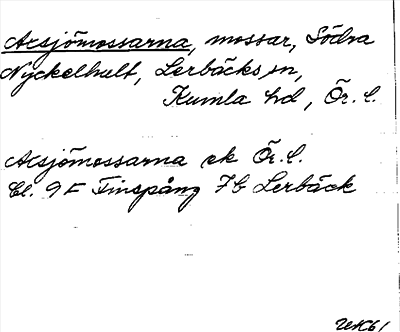 Acsjömossarna, mossar, Södra
Nyckelhult, Lerbäcks sn,
Kumla hd, Ör. l.
Acsjömossarna ek Ör. l.
Bl. 9F Finspång 7b Lerbäck